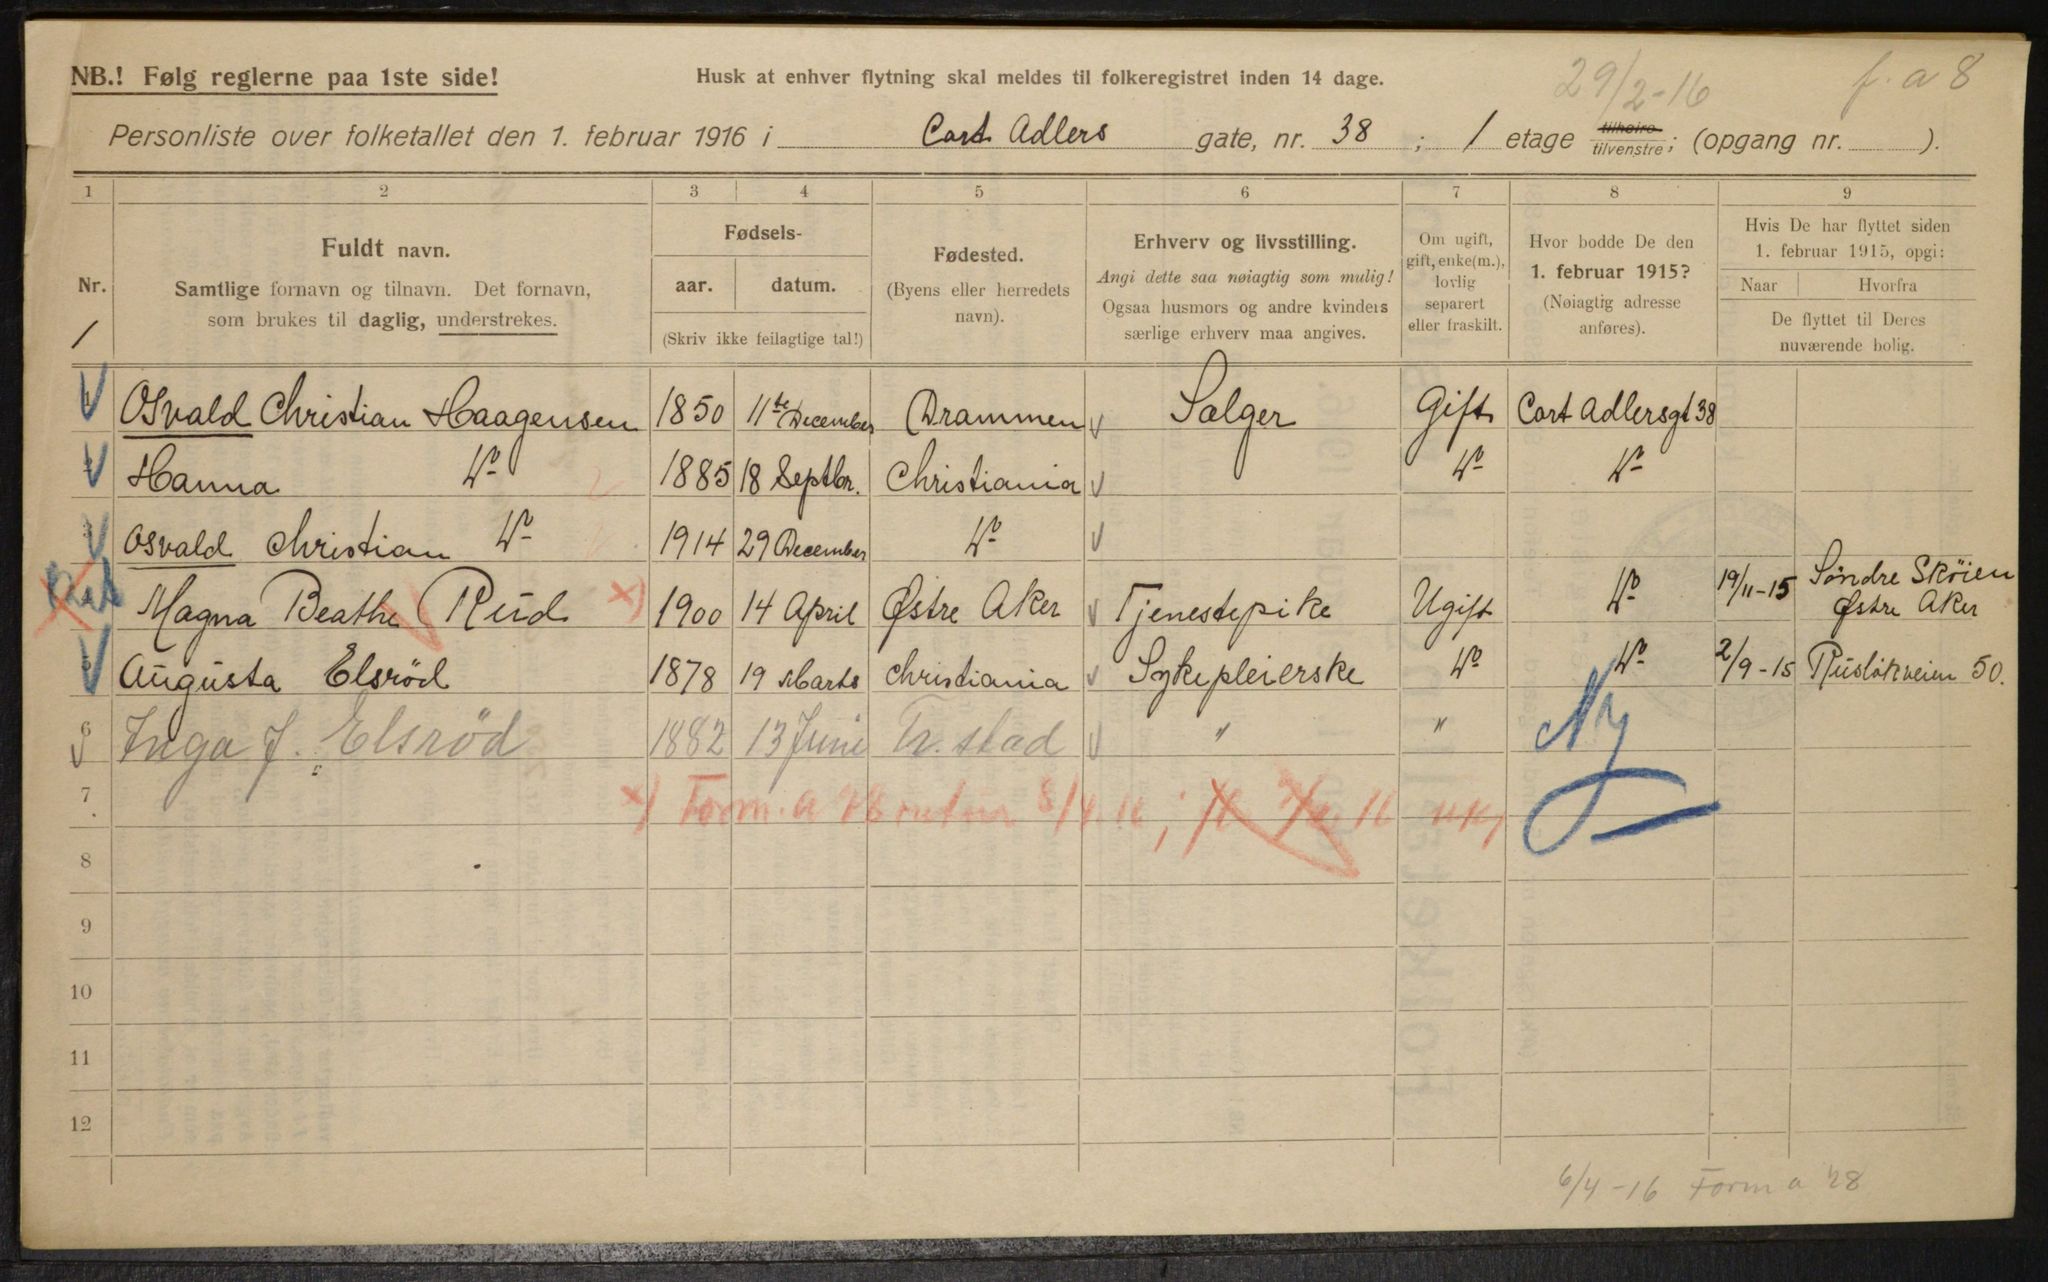 29/2-16 f. a 8
NB.! Følg reglerne paa 1ste side! Husk at enhver flytning skal meldes til folkeregistret inden 14 dage.
Personliste over folketallet den 1. februar 1916 i Cort Adlers gate, nr. 38 ; 1 etage tilhøire tilvenstre; (opgang nr. ).
1 2 3 4 5 6 7 8 9
Nr.
1
Fuldt navn.
Samtlige fornavn og tilnavn. Det fornavn,
som brukes til daglig, understrekes.
Fødsels-
aar. datum.
(Skriv ikke feilagtige tal!)
Fødested.
(Byens eller herredets
navn).
Erhverv og livsstilling.
Angi dette saa nøiagtig som mulig!
Ogsaa husmors og andre kvinders
særlige erhverv maa angives.
Om ugift,
gift, enke(m.),
lovlig
separert
eller fraskilt.
Hvor bodde De den
1. februar 1915?
(Nøiagtig adresse
anføres).
Hvis De har flyttet siden
1. februar 1915, opgi:
Naar Hvorfra
De flyttet til Deres
nuværende bolig.
Osvald Christian Haagensen 1850 11te December Drammen Sælger Gift Cort Adlersgt 38
Hanna Do 1885 18 Septbr. Christiania Do Do
Osvald Christian Do 1914 29 December Do
Magna Beathe Rud x) 1900 14 April Østre Aker Tjenestepike Ugift Do 19/11-15 Söndre Sköien
Østre Aker
Augusta Elsröd 1878 19 Marts Christiania Sykepleierske Do Do 2/9-15 Rusløkveien 50.
6 Inga J. Elsröd 1882 13 Juni Fr.stad " " Ny
7 x) Form. a 28 retur 8/4.16;
8
9
10
11
12
6/4-16 Form a 28